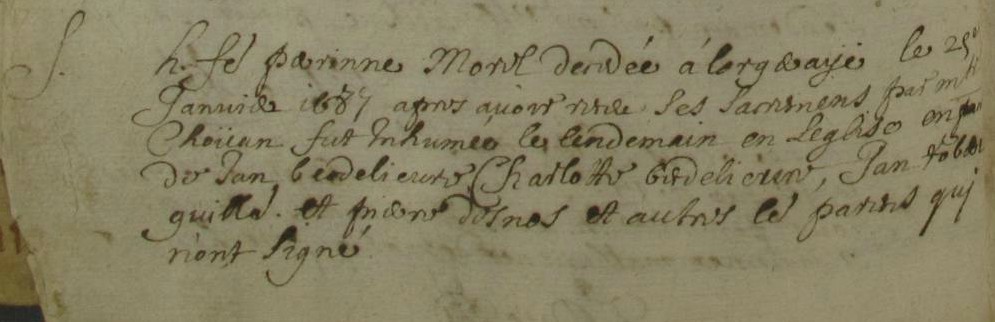 S.
h. fe perinne Morel decedée á lorgeraye le 25e
Janvier 1687 apres avoir receu ses sacremens par mre
Choüan fut inhumee le lendemain en Leglise en pñce
de Jan berdelievre Charlotte berdelievre, Jan
guille. et pierre desnos et autres ses parens qui
n'ont signé